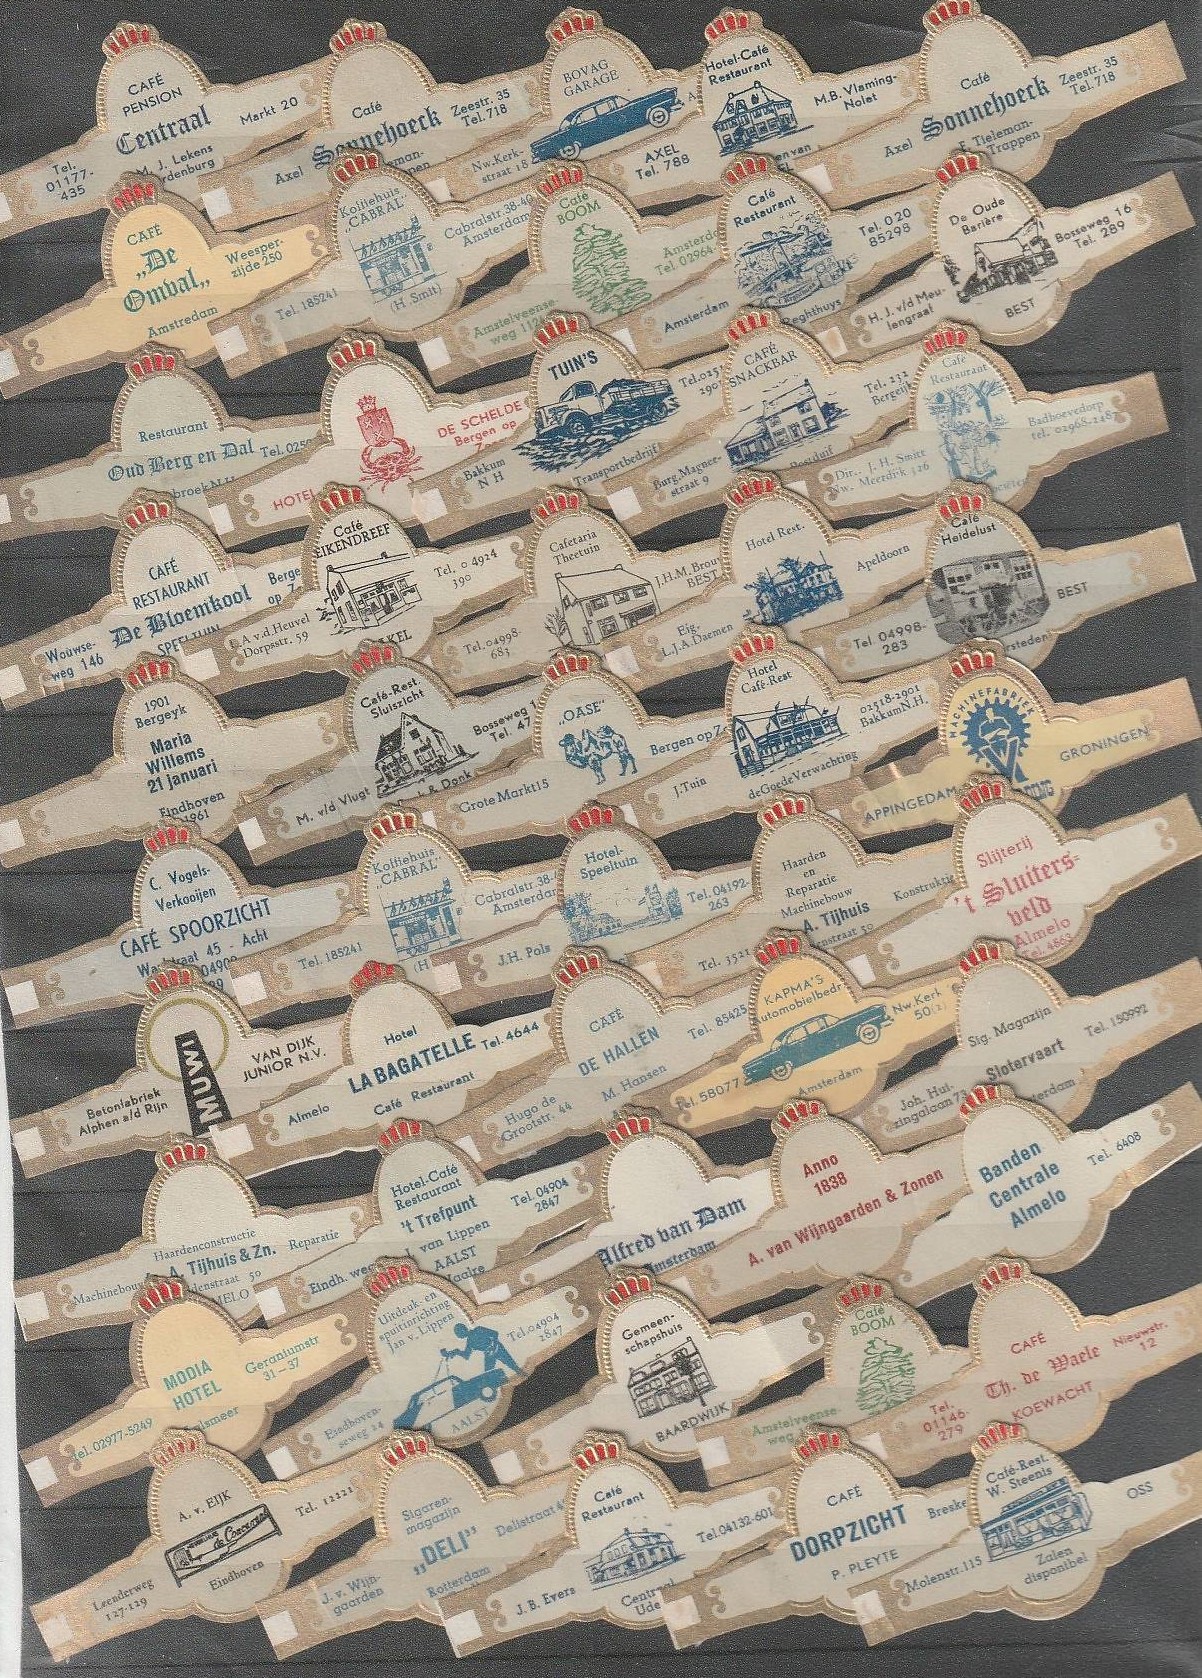 CAFÉ
PENSION
Centraal
Markt 20
M. J. Lekens
Tel.
01177-
435
Café
Sonnehoeck
Zeestr. 35
Tel. 718
Axel
BOVAG
GARAGE
Nw. Kerk-
straat 18
Hotel-Café
Restaurant
M.B. Vlaming-
Nolet
AXEL
Tel. 788
Café
Sonnehoeck
Zeestr. 35
Tel. 718
Axel
F. Tieleman-
Trappen
CAFÉ
„De
Omval„
Weesper-
zijde 250
Amstredam
Koffiehuis
„CABRAL”
Cabralstr. 38-40
Amsterdam
Tel. 185241
(H. Smit)
Café
BOOM
Tel. 02964
Amstelveense-
Café
Restaurant
Tel. 020
85298
Amsterdam
Reghthuys
De Oude
Barière
Bosseweg 16
Tel. 289
H. J. v/d Meu-
lengraaf
BEST
Restaurant
Oud Berg en Dal
HOTEL
DE SCHELDE
Bergen op
TUIN'S
Bakkum
N H
Transportbedrijf
CAFÉ
SNACKBAR
Tel. 232
Burg. Magnee-
straat 9
Café
Restaurant
Badhoevedorp
tel. 02968-248
Dir. J. H. Smitt
Nw. Meerdijk 426
CAFÉ
RESTAURANT
De Bloemkool
SPEELTUIN
Wouwse-
weg 146
Café
EIKENDREEF
Tel. 04924
390
A. v.d. Heuvel
Dorpsstr. 59
Cafetaria
Theetuin
J.H.M. Brou
BEST
Tel. 04998-
683
Hotel Rest.
Apeldoorn
Eig.
L.J.A. Daemen
Café
Heidelust
BEST
Tel. 04998-
283
1901
Bergeyk
Maria
Willems
21 januari
Eindhoven
1961
Café-Rest.
Sluiszicht
Bosseweg 1
Tel. 47
M. v/d Vlugt
„OASE”
Bergen op Z
Grote Markt 15
Hotel
Café-Rest
02518-2901
Bakkum N.H.
J. Tuin
de Goede Verwachting
MACHINEFABRIEK
GRONINGEN
APPINGEDAM
C. Vogels-
Verkooijen
CAFÉ SPOORZICHT
45 - Acht
Koffiehuis
„CABRAL”
Cabralstr. 38-
Amsterdam
Tel. 185241
Hotel-
Speeltuin
Tel. 04192-
263
J.H. Pols
Haarden
en
Reparatie
Machinebouw
A. Tijhuis
Konstruktie
Slijterij
't Sluiters-
veld
Almelo
Tel. 4663
MUWI
VAN DIJK
JUNIOR N.V.
Betonfabriek
Alphen a/d Rijn
Hotel
LA BAGATELLE
Tel. 4644
Almelo
Café Restaurant
CAFÉ
DE HALLEN
Tel. 85425
Hugo de
Grootstr. 44
M. Hansen
KAPMA'S
Automobielbedr
Nw. Kerk
50(2)
Tel. 58077
Amsterdam
Sig. Magazijn
Slotervaart
Tel. 150992
Joh. Hui-
zingalaan 73
Haardenconstructie
A. Tijhuis & Zn.
Reparatie
Machinebouw
Hotel-Café
Restaurant
't Trefpunt
J. van Lippen
AALST
Waalre
Tel. 04904
2847
Eindh. weg
Alfred van Dam
Amsterdam
Anno
1838
A. van Wijngaarden & Zonen
Banden
Centrale
Almelo
Tel. 6408
MODIA
HOTEL
Geraniumstr
31-37
Tel. 02977-5249
Aalsmeer
Uitdeuk. en
spuitinrichting
Jan v. Lippen
Tel. 04904
2847
Eindhoven-
seweg 24
AALST
Gemeen-
schapshuis
BAARDWIJK
Café
BOOM
Amstelveense-
weg
CAFÉ
Th. de Waele
Nieuwstr.
12
Tel.
01146-
279
KOEWACHT
A. v. EIJK
Tel. 12221
Leenderweg
127-129
Eindhoven
Sigaren-
magazijn
„DELI”
Delistraat 4
J. v. Wijn-
gaarden
Rotterdam
Café
Restaurant
Tel. 04132-601
J.B. Evers
Centraal
Ude
CAFÉ
DORPZICHT
Breske
P. PLEYTE
Café-Rest.
W. Steenis
OSS
Molenstr. 115
Zalen
disponibel